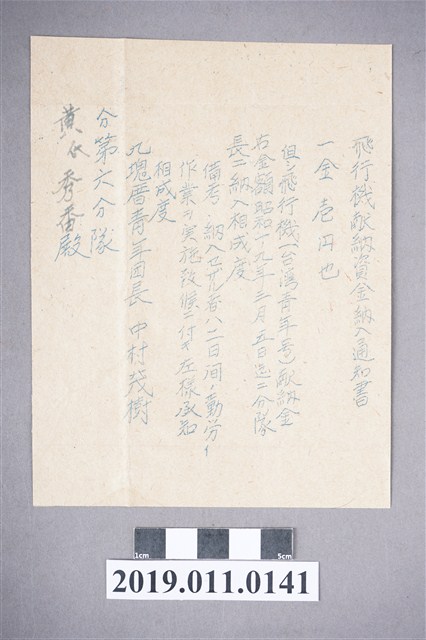 飛行機献納資金納入通知書
一金 壱円也
但シ飛行機(台湾青年号)献納金
右金額昭和十九年三月五日迄ニ分隊
長ニ納入相成度
備考 納入セザル者ハ二日間ノ勤労
作業ヲ実施致候ニ付キ左様承知
相成度
九塊厝青年団長 中村茂樹
分第六分隊
黄 秀番殿
1cm 5cm
2019.011.0141